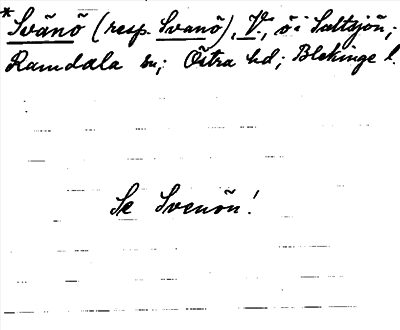 *Svänö (resp. Svanö), V., ö i Saltsjön;
Ramdala sn; Östra hd; Blekinge l.
Se Svenön!